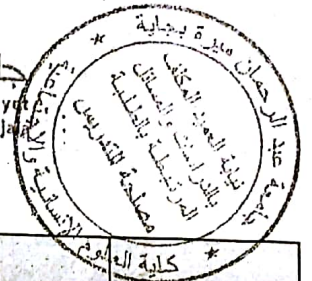 جامعة عبد الرحمان ميرة بجاية
كلية العلوم الإنسانية والاجتماعية
نيابة العميد المكلف
بالدراسات والمسائل
المرتبطة بالطلبة
مصلحة التدريس